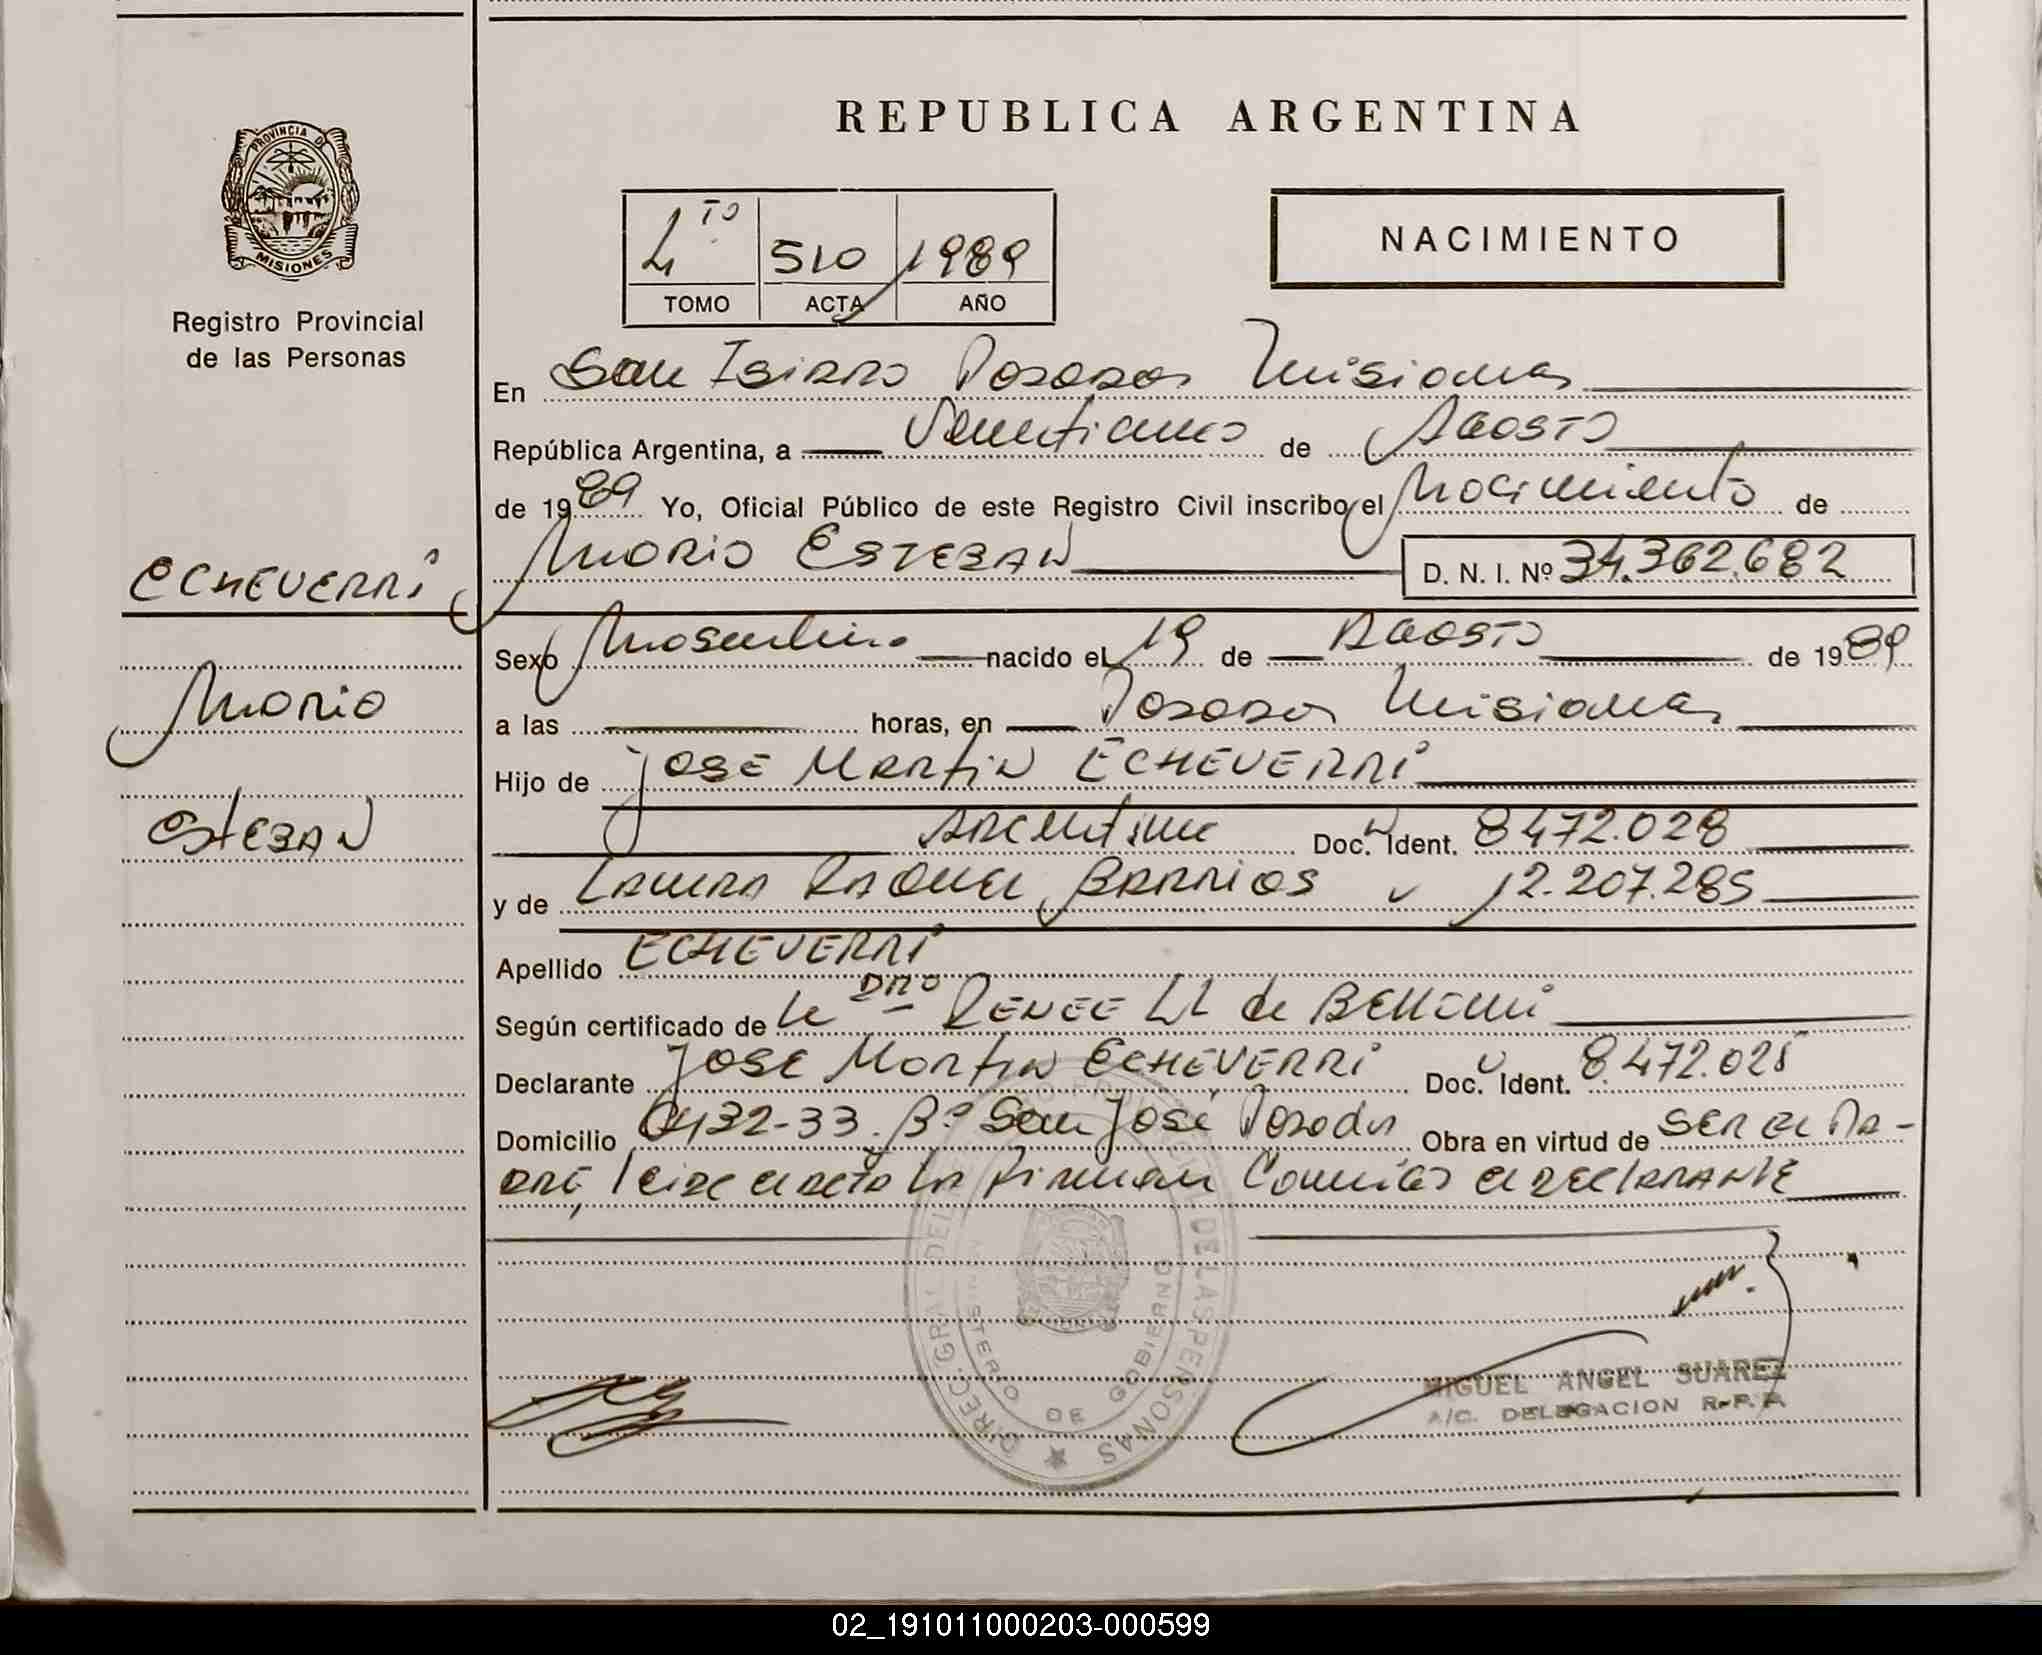 REPUBLICA ARGENTINA
PROVINCIA DE
MISIONES
Registro Provincial
de las Personas
4TO 510 1989
TOMO ACTA AÑO
NACIMIENTO
En San Isidro Posadas Misiones
República Argentina, a Veintiuno de Agosto
de 1989 Yo, Oficial Público de este Registro Civil inscribo el Nacimiento de
ECHEVERRI, Mario ESTEBAN D. N. I. Nº 34.362.682
Mario
ESTEBAN
Sexo Masculino nacido el 19 de Agosto de 1989
a las horas, en Posadas Misiones
Hijo de JOSE MARTIN ECHEVERRI
Argentino Doc. Ident. 8472.028
y de LAURA RAQUEL BARRIOS 12.207.285
Apellido ECHEVERRI
Según certificado de la DRA RENEE de
Declarante JOSE Martin ECHEVERRI Doc. Ident. 8.472.028
Domicilio 132-33. Bº San José Posadas Obra en virtud de SER EL PA-
DRE, leida el acta la firman Conmigo el DECLARANTE
DIREC. GRAL DEL REGISTRO PROVINCIAL DE LAS PERSONAS
MINISTERIO DE GOBIERNO
MIGUEL ANGEL SUAREZ
A/C. DELEGACION R.P.P.
02_191011000203-000599